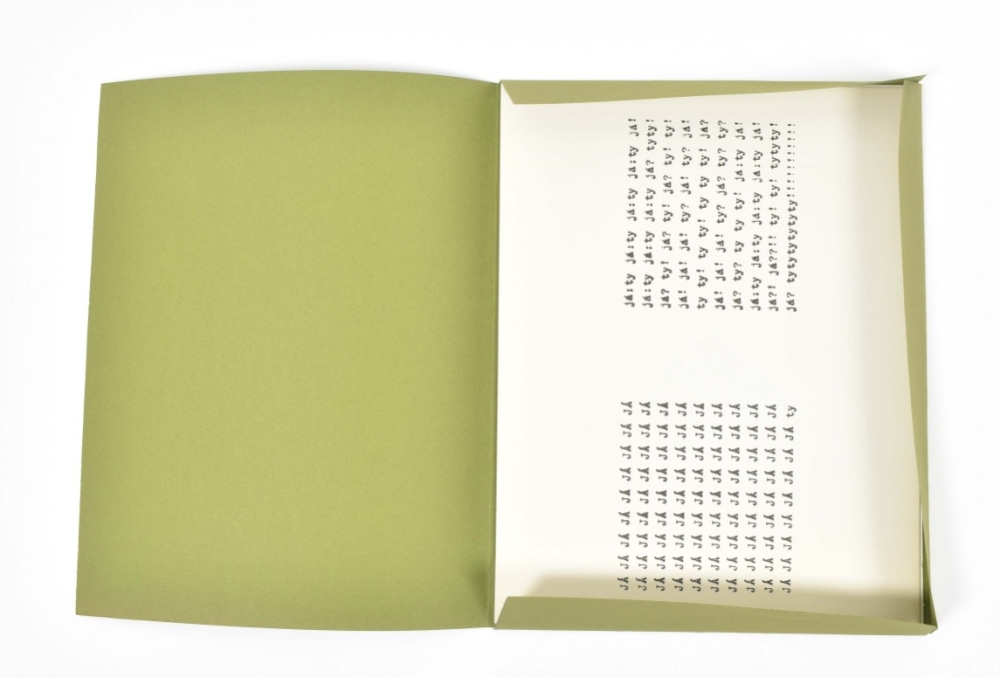 JÁ JÁ JÁ JÁ JÁ JÁ JÁ JÁ JÁ
JÁ JÁ JÁ JÁ JÁ JÁ JÁ JÁ JÁ
JÁ JÁ JÁ JÁ JÁ JÁ JÁ JÁ JÁ
JÁ JÁ JÁ JÁ JÁ JÁ JÁ JÁ JÁ
JÁ JÁ JÁ JÁ JÁ JÁ JÁ JÁ JÁ
JÁ JÁ JÁ JÁ JÁ JÁ JÁ JÁ JÁ
JÁ JÁ JÁ JÁ JÁ JÁ JÁ JÁ JÁ
JÁ JÁ JÁ JÁ JÁ JÁ JÁ JÁ JÁ
JÁ JÁ JÁ JÁ JÁ JÁ JÁ JÁ JÁ
JÁ JÁ JÁ JÁ JÁ JÁ JÁ JÁ ty
já:ty já:ty já:ty já:ty já!
já:ty já:ty já:ty já? tyty!
já? ty! já? ty! já? ty! ty!
já! já! já! ty? já! ty? já!
ty ty! ty ty! ty ty ty! já?
já! já! já! ty? já? ty? ty?
já? ty? ty ty ty! já:ty já!
já:ty já:ty já:ty já:ty já!
já?! já??!! ty! ty! tytyty!
já? tytytytytyty!!!!!!!!!!!